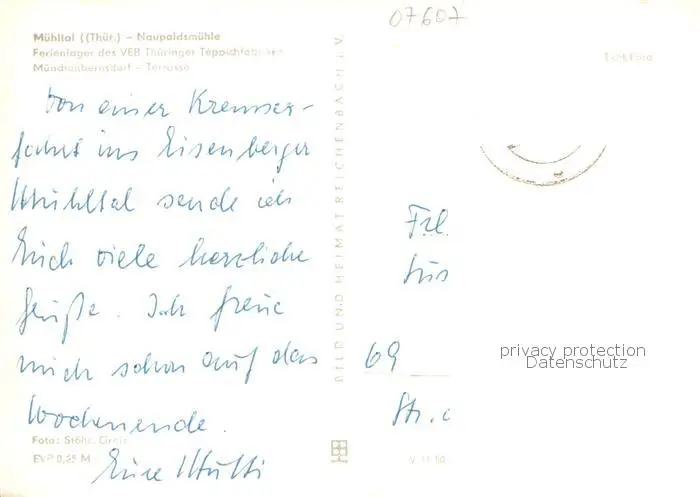 07607
Mühltal ((Thür.) – Naupoldsmühle
Ferienlager des VEB Thüringer Teppichfabriken
Münchenbernsdorf – Terrasse
Von einer Kremser-
fahrt ins Eisenberger
Mühltal sende ich
Euch viele herzliche
Grüße. Ich freue
mich schon auf das
Wochenende.
Eure Mutti
Foto: Stöhr, Greiz
EVP 0,25 M
BILD UND HEIMAT REICHENBACH I. V.
Frl.
69
Str.
privacy protection
Datenschutz